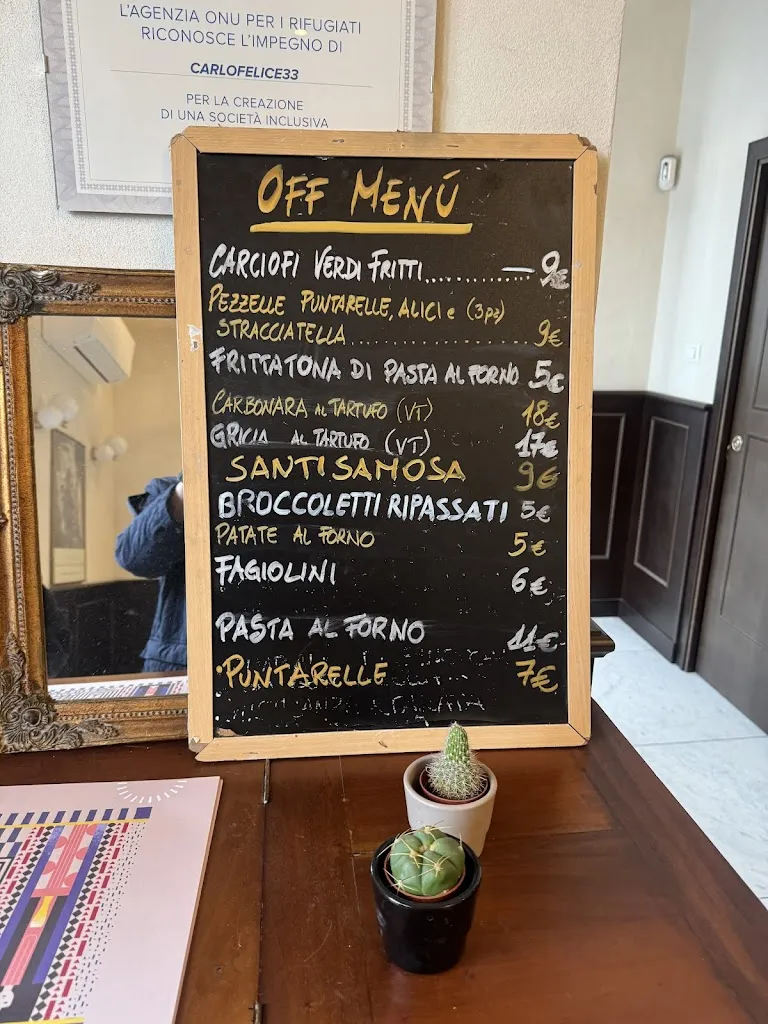 L'AGENZIA ONU PER I RIFUGIATI
RICONOSCE L'IMPEGNO DI
CARLOFELICE33
PER LA CREAZIONE
DI UNA SOCIETÀ INCLUSIVA
OFF MENÚ
CARCIOFI VERDI FRITTI.............. 9€
PEZZELLE PUNTARELLE, ALICI e (3pz)
STRACCIATELLA.......................... 9€
FRITTATONA DI PASTA AL FORNO 5€
CARBONARA AL TARTUFO (VT) 18€
GRICIA AL TARTUFO (VT) 17€
SANTI SAMOSA 9€
BROCCOLETTI RIPASSATI 5€
PATATE AL FORNO 5€
FAGIOLINI 6€
PASTA AL FORNO 11€
•PUNTARELLE 7€